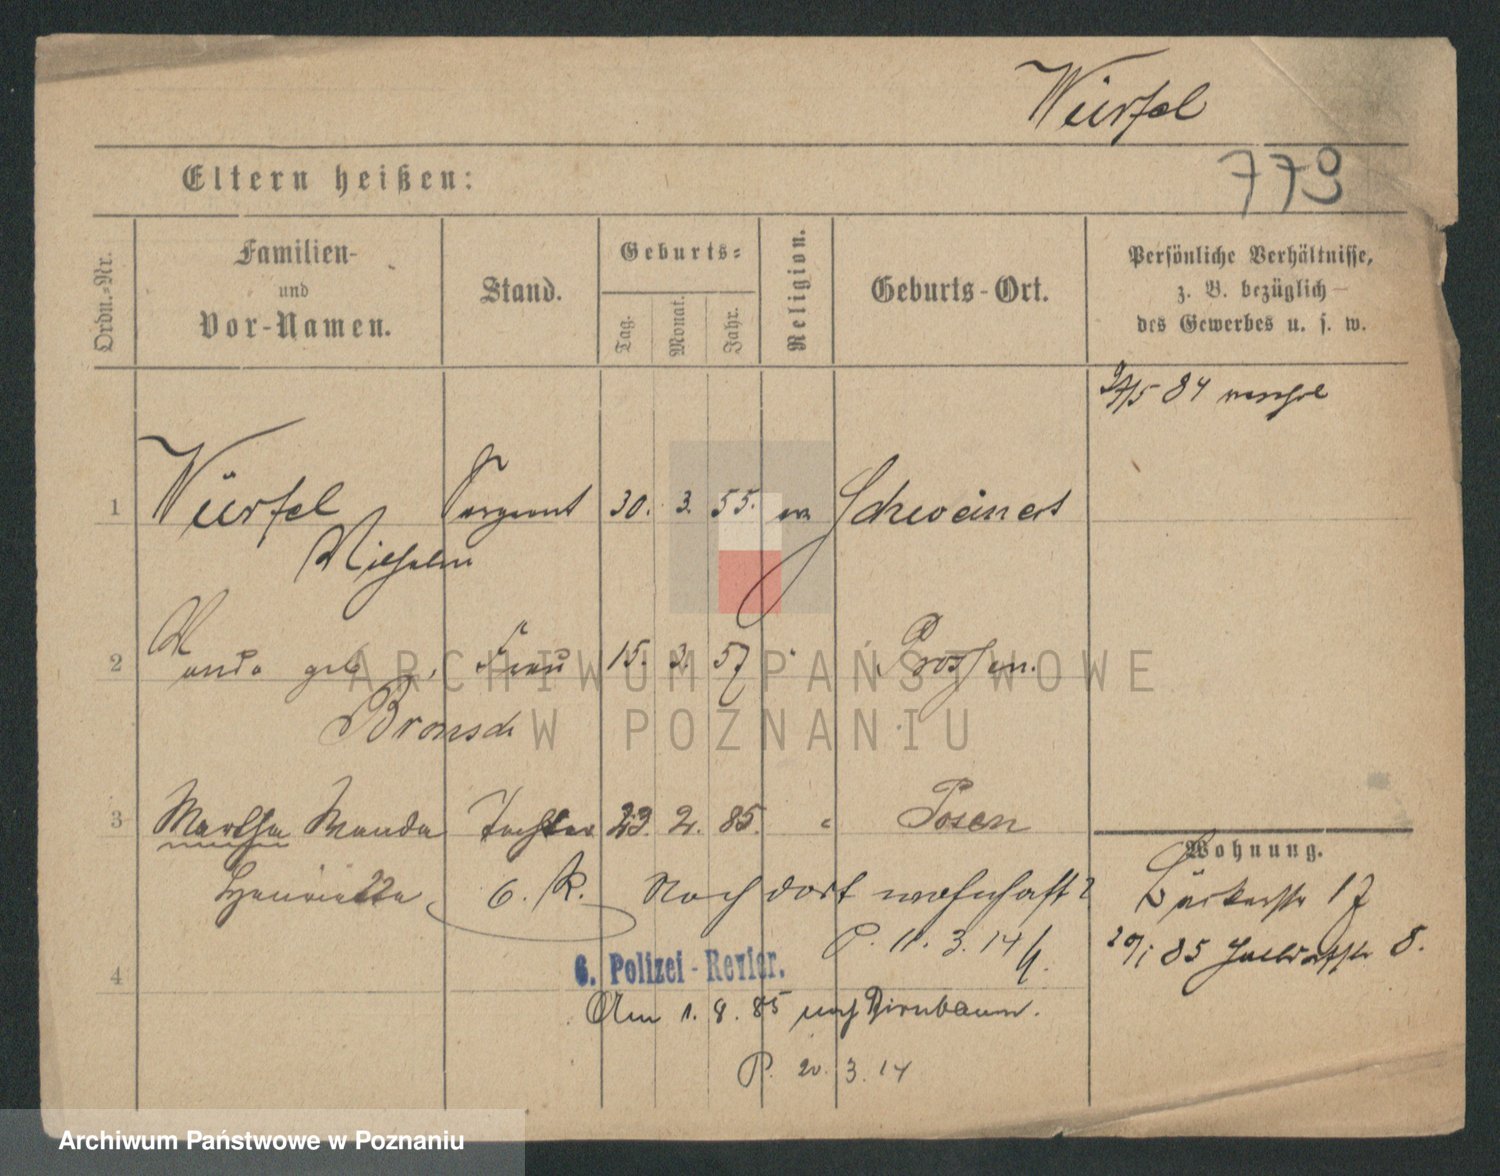 Würfel
779
Eltern heißen:
Ordn.-Nr.
Familien-
und
Vor-Namen.
Stand.
Geburts-
Tag.
Monat.
Jahr.
Religion.
Geburts-Ort.
Persönliche Verhältnisse,
z. B. bezüglich
des Gewerbes u. s. w.
5 84
1 Würfel Sergeant 30. 3. 55. ev Schweinert
Wilhelm
2 Wanda geb. Frau 15. 3. 57 "
Bronsch
3 Martha Wanda Tochter 23. 2. 85. " Posen
Wohnung.
Henriette 6. R. Noch dort wohnhaft?
17
P. 11. 3. 14
85 8.
4 6. Polizei-Revier.
Am 1. 9. 85 nach Birnbaum.
P. 20. 3. 14
ARCHIWUM PAŃSTWOWE
W POZNANIU
Archiwum Państwowe w Poznaniu